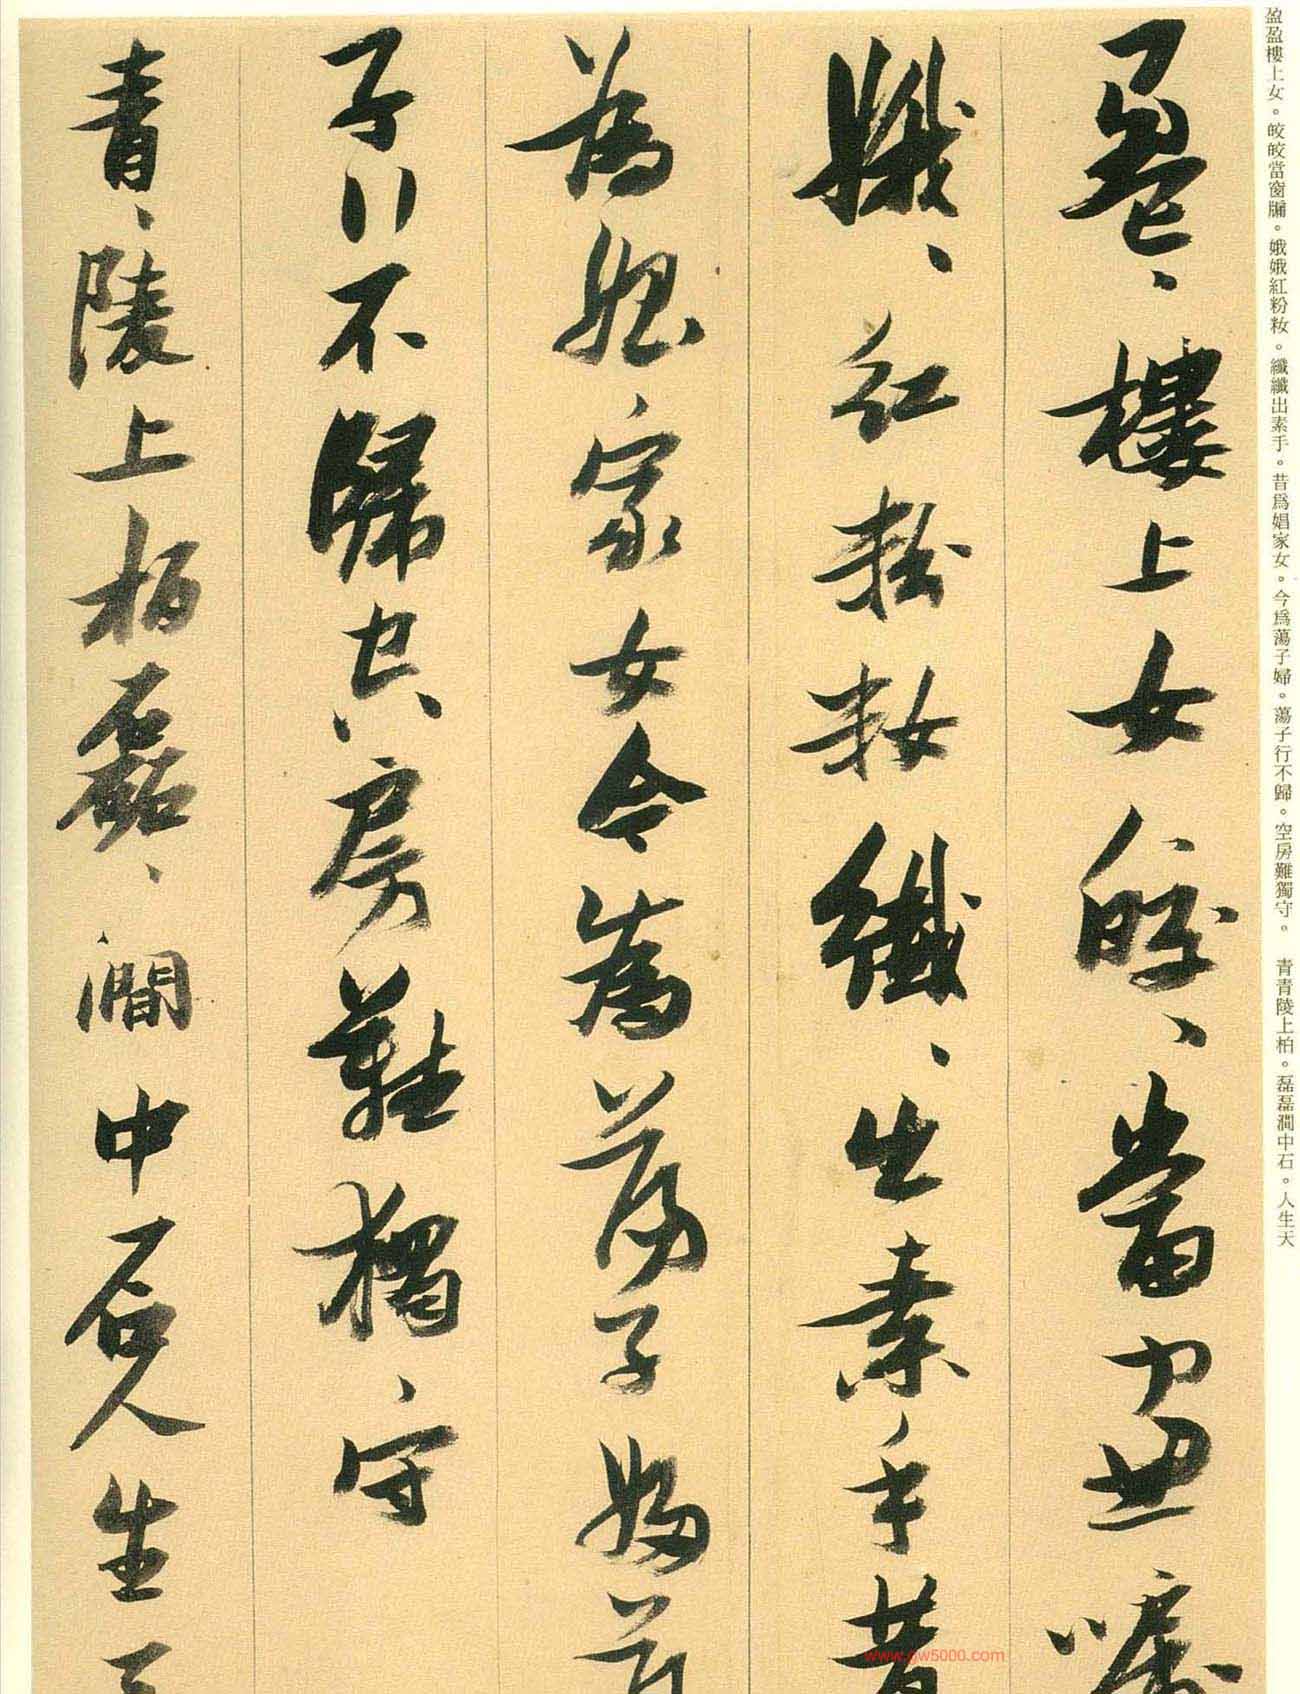 盈盈樓上女。皎皎當窗牖。娥娥紅粉妝。纖纖出素手。昔爲娼家女。今爲蕩子婦。蕩子行不歸。空房難獨守。　青青陵上柏。磊磊澗中石。人生天
盈、樓上女皎、當窗牖
娥、紅粉妝纖、出素手昔
為娼家女今為蕩子婦蕩
子行不歸空房難獨守
青、陵上柏磊、澗中石人生天
www.gw5000.com